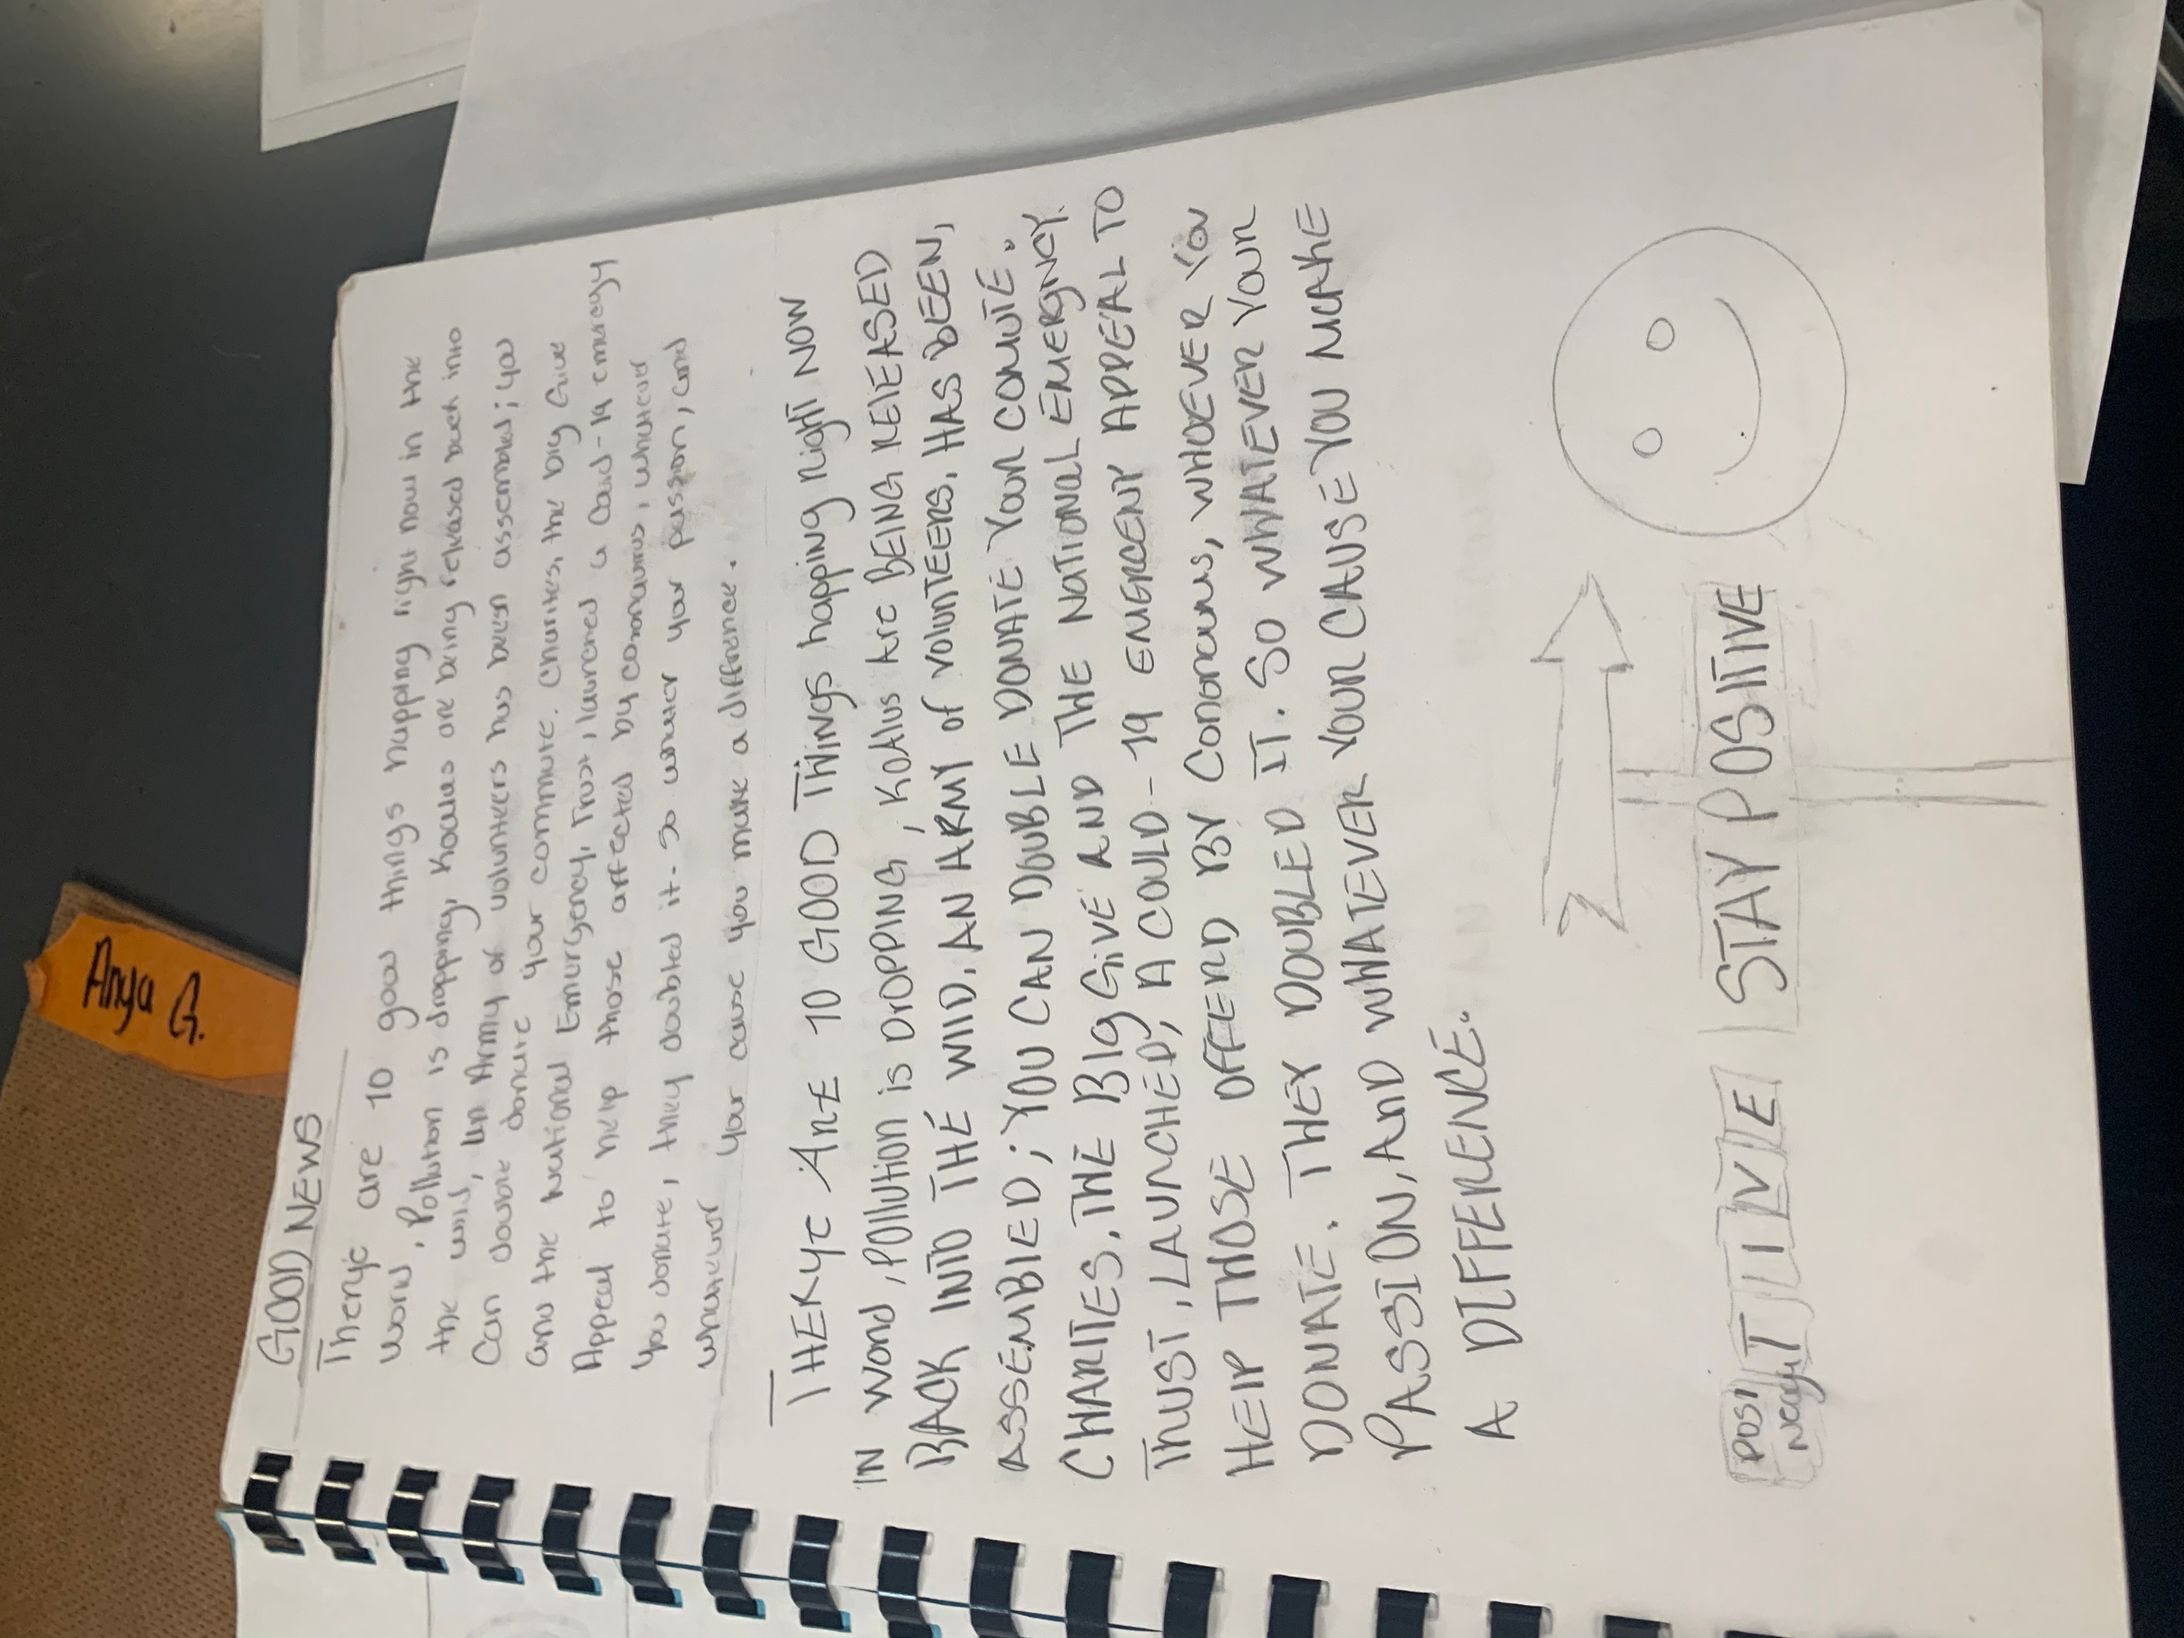 Anya G.
GOOD NEWS
There are 10 good things happing right now in the
world, Pollution is dropping, Koalas are being released back into
the wild, an Army of volunteers has been assembled; you
Can double donate your commute. Charities, the big Give
and the national Emurgency, Trust, launched a Covid-19 emergy
Appeal to help those affected by coronavirus, whatever
you donate, they doubled it. So whatever your passion, and
whatever your cause you make a difference.
THERYE ARE 10 GOOD THiNgs happing Right NOW
IN World, POllution is DrOPPING, KoAlas Are BEING RElEASED
BACK INTO THE WilD, AN ARMY of VOlUNTEERS, HAS BEEN,
ASSEMBlED; YOU CAN DOUBLE DONATE YOUR COMUTE.
CHARITIES, THE BIg GiVE AND THE NATIONAL EMERgNCY.
TRUST, LAUNCHED, A COULD-19 EMERCENY APPEAL TO
HElP THOSE OFFERD BY Conorarus, WHOEVER YOU
DONATE. THEY DOUBLED IT. SO WHATEVER YOUR
PASSION, AND WHATEVER YOUR CAUSE YOU MAKE
A DIFFERENCE.
POSI T I V E STAY POSITIVE
Negi